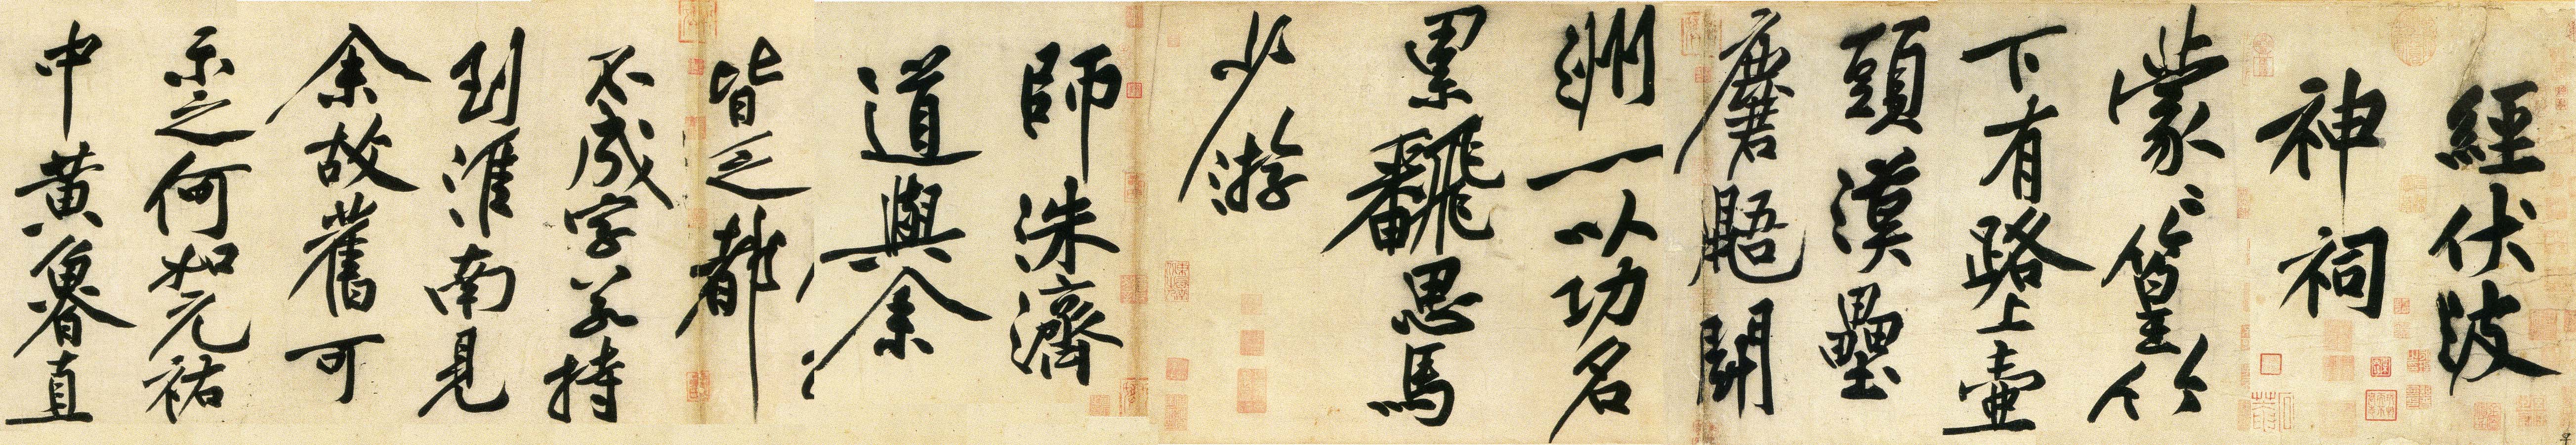 經伏波
神祠
蒙蒙篁竹
下有路上壺
頭漢壘
麏麚鬭
洲一以功名
累翻思馬
少游
師洙濟
道與余
皆之都
不成字若持
到淮南見
余故舊可
示之何如元祐
中黃魯直